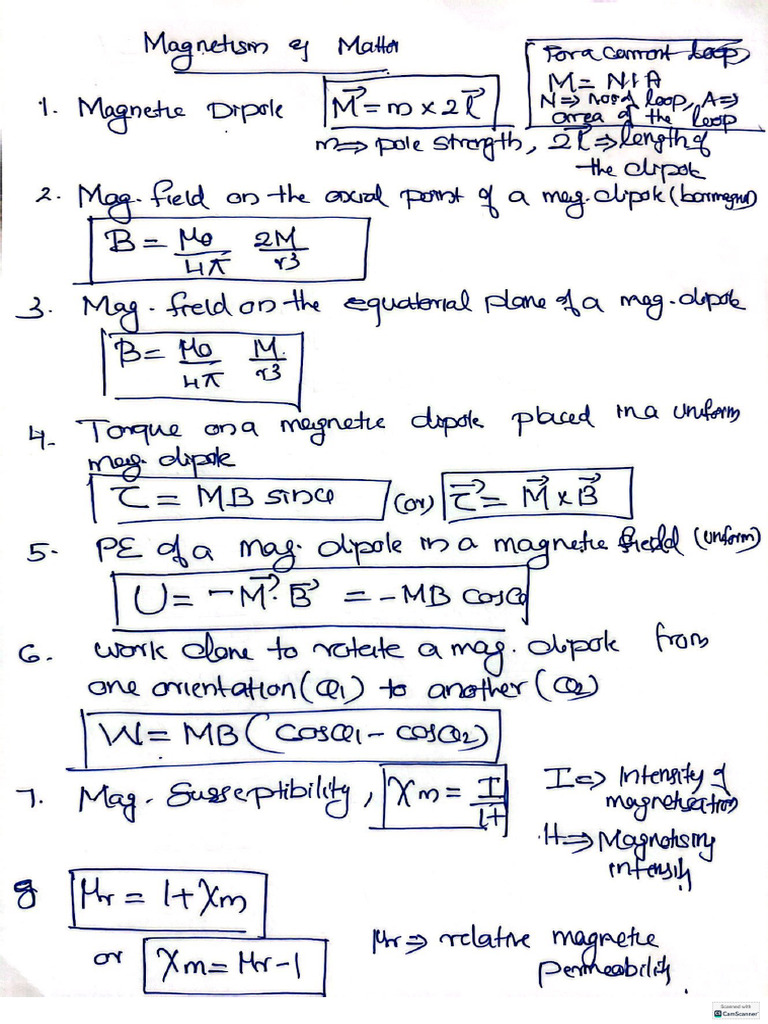 Magnetism of Matter
For a current loop
M = NIA
N ⇒ no of loop, A ⇒
area of the loop
1. Magnetic Dipole M⃗ = m × 2l⃗
m ⇒ pole strength, 2l⃗ ⇒ length of
the dipole
2. Mag. field on the axial point of a mag. dipole (barmagnet)
B = μ0/4π 2M/r3
3. Mag. field on the equatorial plane of a mag. dipole
B = μ0/4π M/r3
4. Torque on a magnetic dipole placed in a uniform
mag. dipole
τ = MB sinθ (or) τ⃗ = M⃗ × B⃗
5. PE of a mag. dipole in a magnetic field (uniform)
U = -M⃗. B⃗ = -MB cosθ
6. work done to rotate a mag. dipole from
one orientation (θ1) to another (θ2)
W = MB (cosθ1 - cosθ2)
7. Mag. Susseptibility, χm = I/H
I ⇒ Intensity of
magnetisation
H ⇒ Magnetising
intensity
8 μr = 1 + χm
or χm = μr - 1
μr ⇒ relative magnetic
permeability.
Scanned with
CS CamScanner